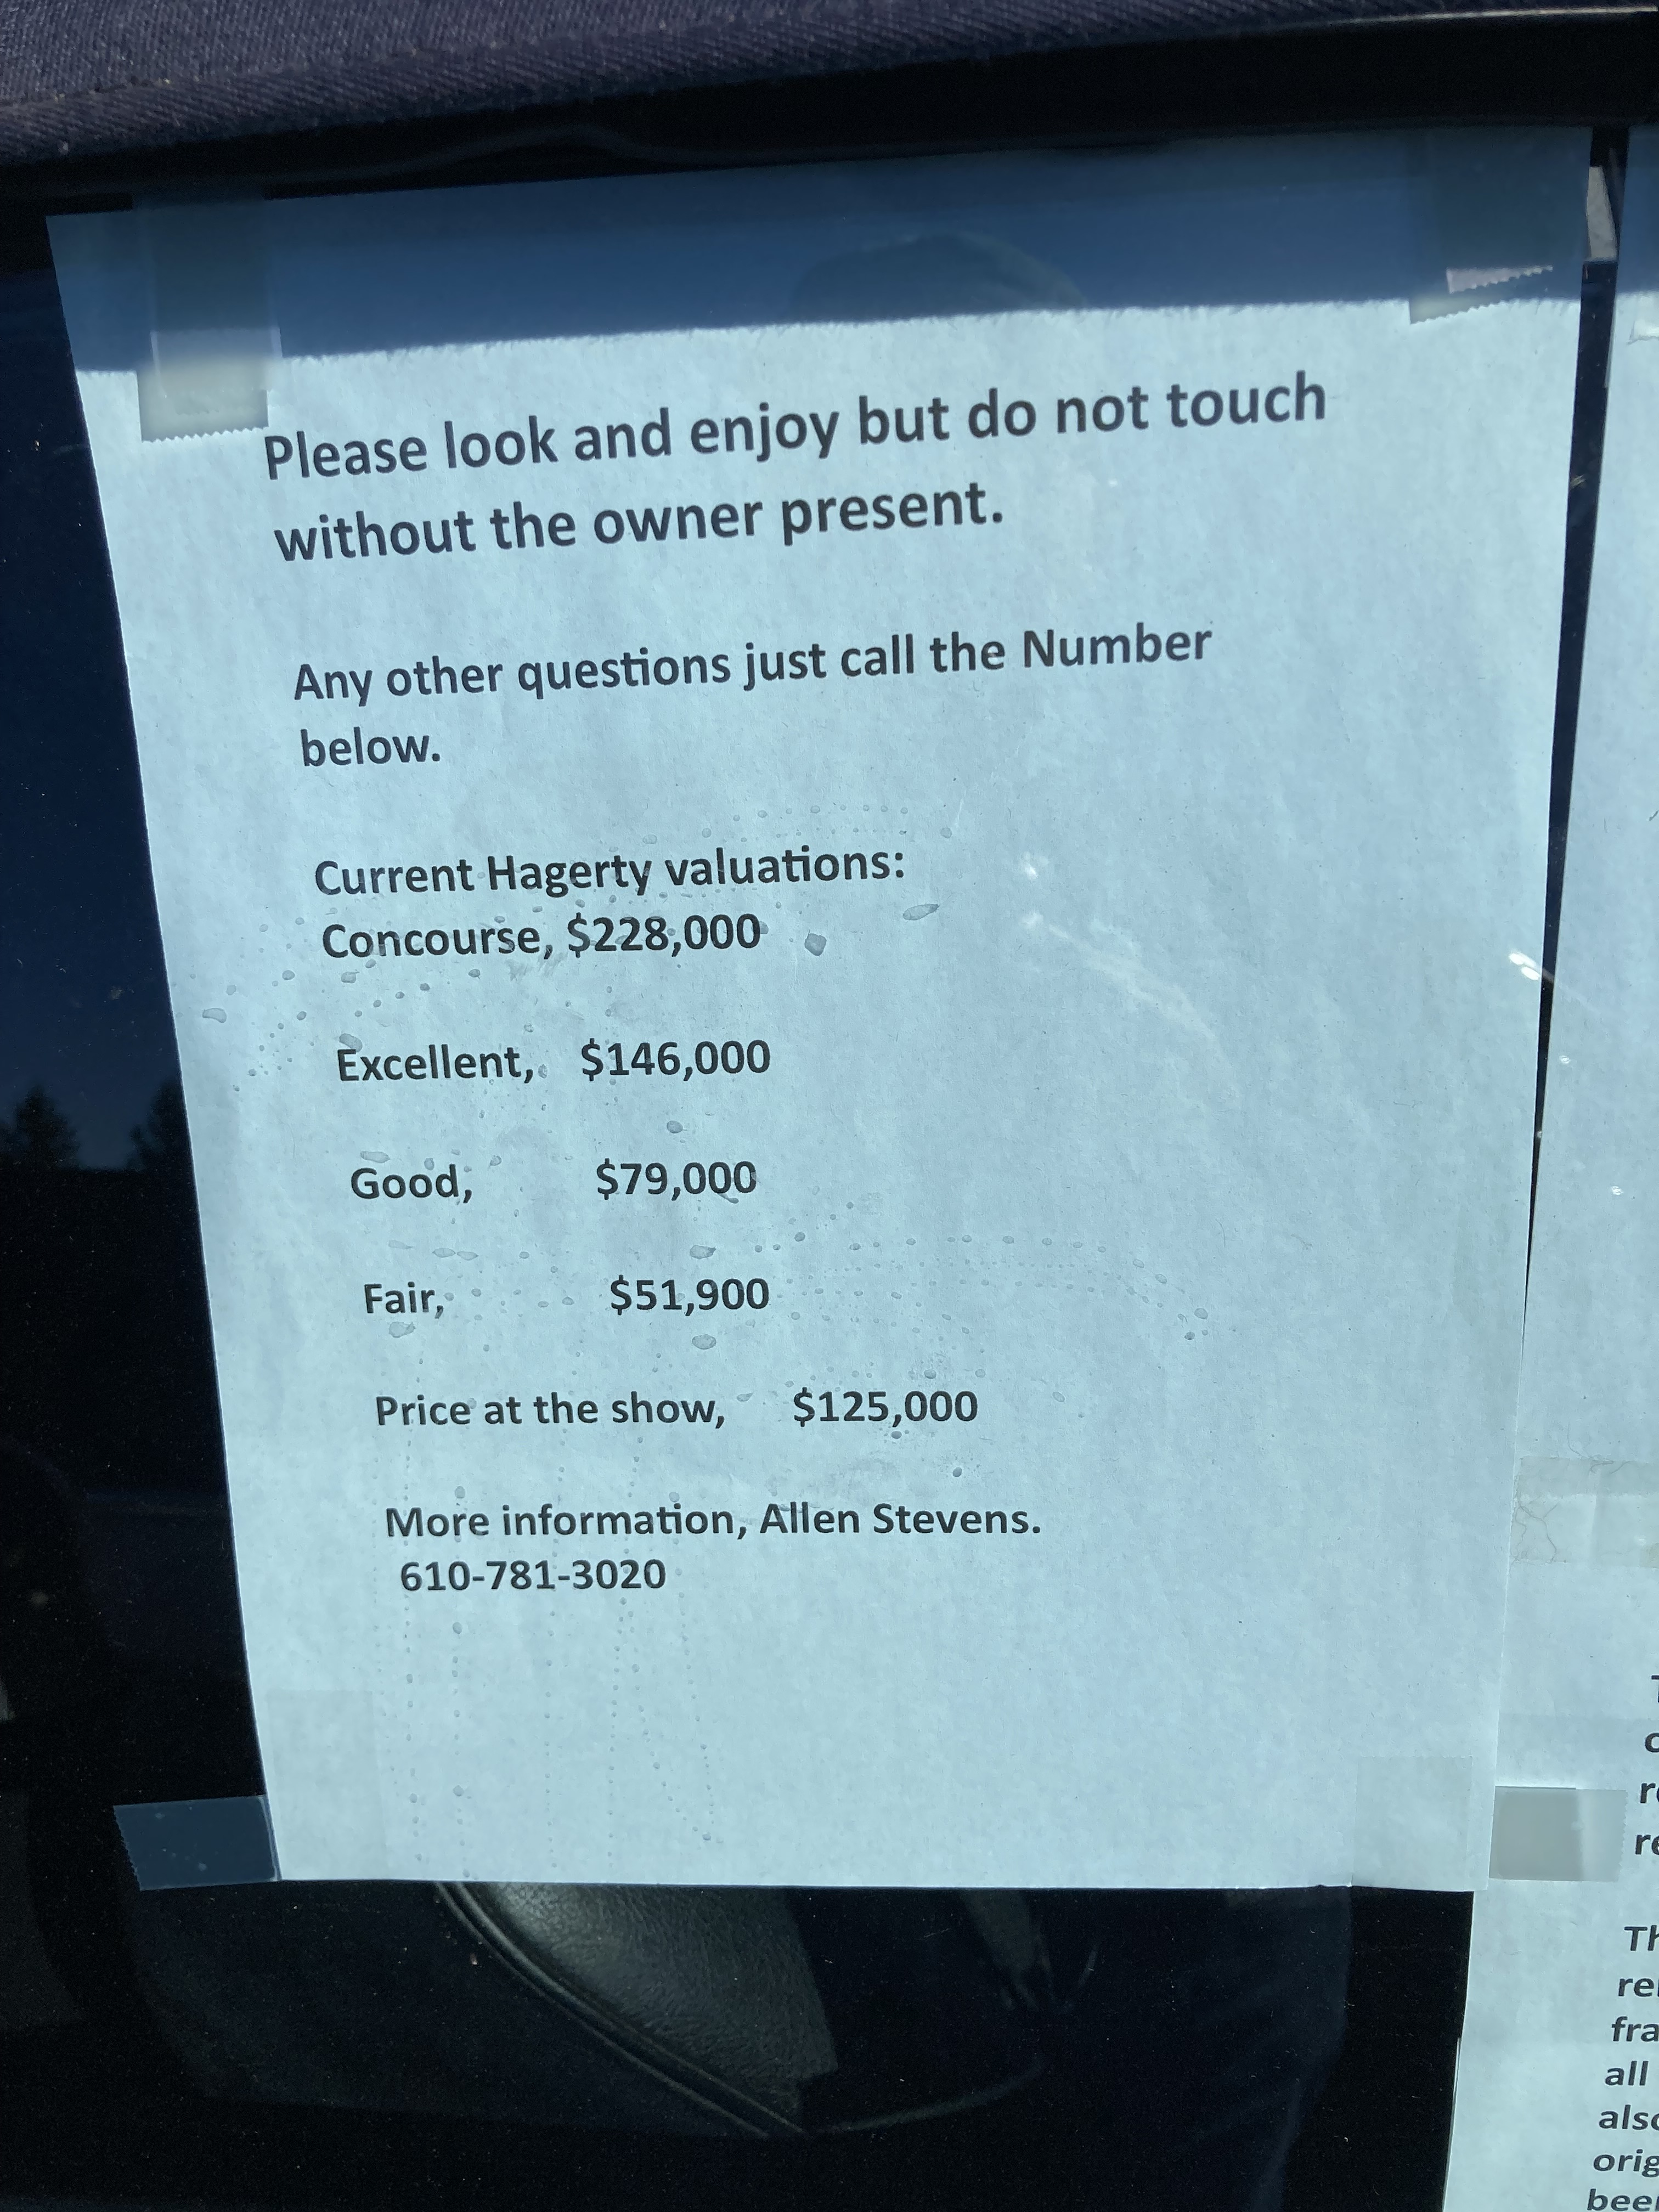 Please look and enjoy but do not touch
without the owner present.
Any other questions just call the Number
below.
Current Hagerty valuations:
Concourse, $228,000
Excellent, $146,000
Good, $79,000
Fair, $51,900
Price at the show, $125,000
More information, Allen Stevens.
610-781-3020
Th
all